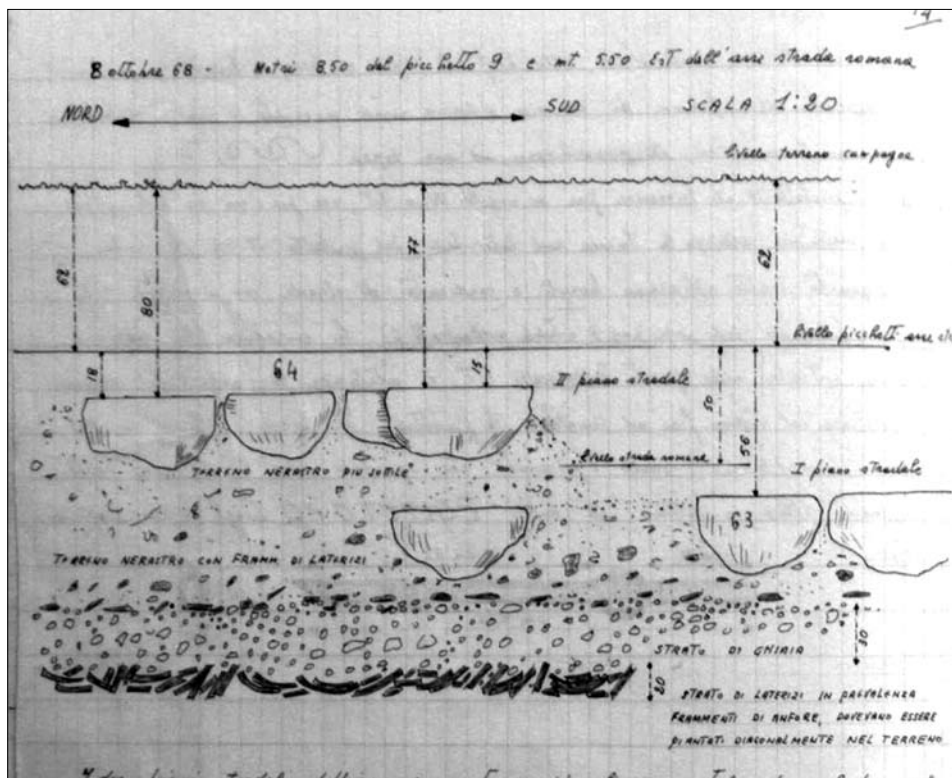 14
8 ottobre 68 - Metri 8.50 dal picchetto 9 e mt. 5.50 Est dell'asse strada romana
NORD SUD SCALA 1:20
livello terreno campagna
62 80 77 62
livello picchetti asse
18 64 15 II piano stradale 50 56
livello strada romana
TERRENO NERASTRO PIU SOTILE
I piano stradale
63
TERRENO NERASTRO CON FRAMM. DI LATERIZI
STRATO DI GHIAIA
20
STRATO DI LATERIZI IN PREVALENZA
FRAMMENTI DI ANFORE, DOVEVANO ESSERE
PIANTATI DIAGONALMENTE NEL TERRENO